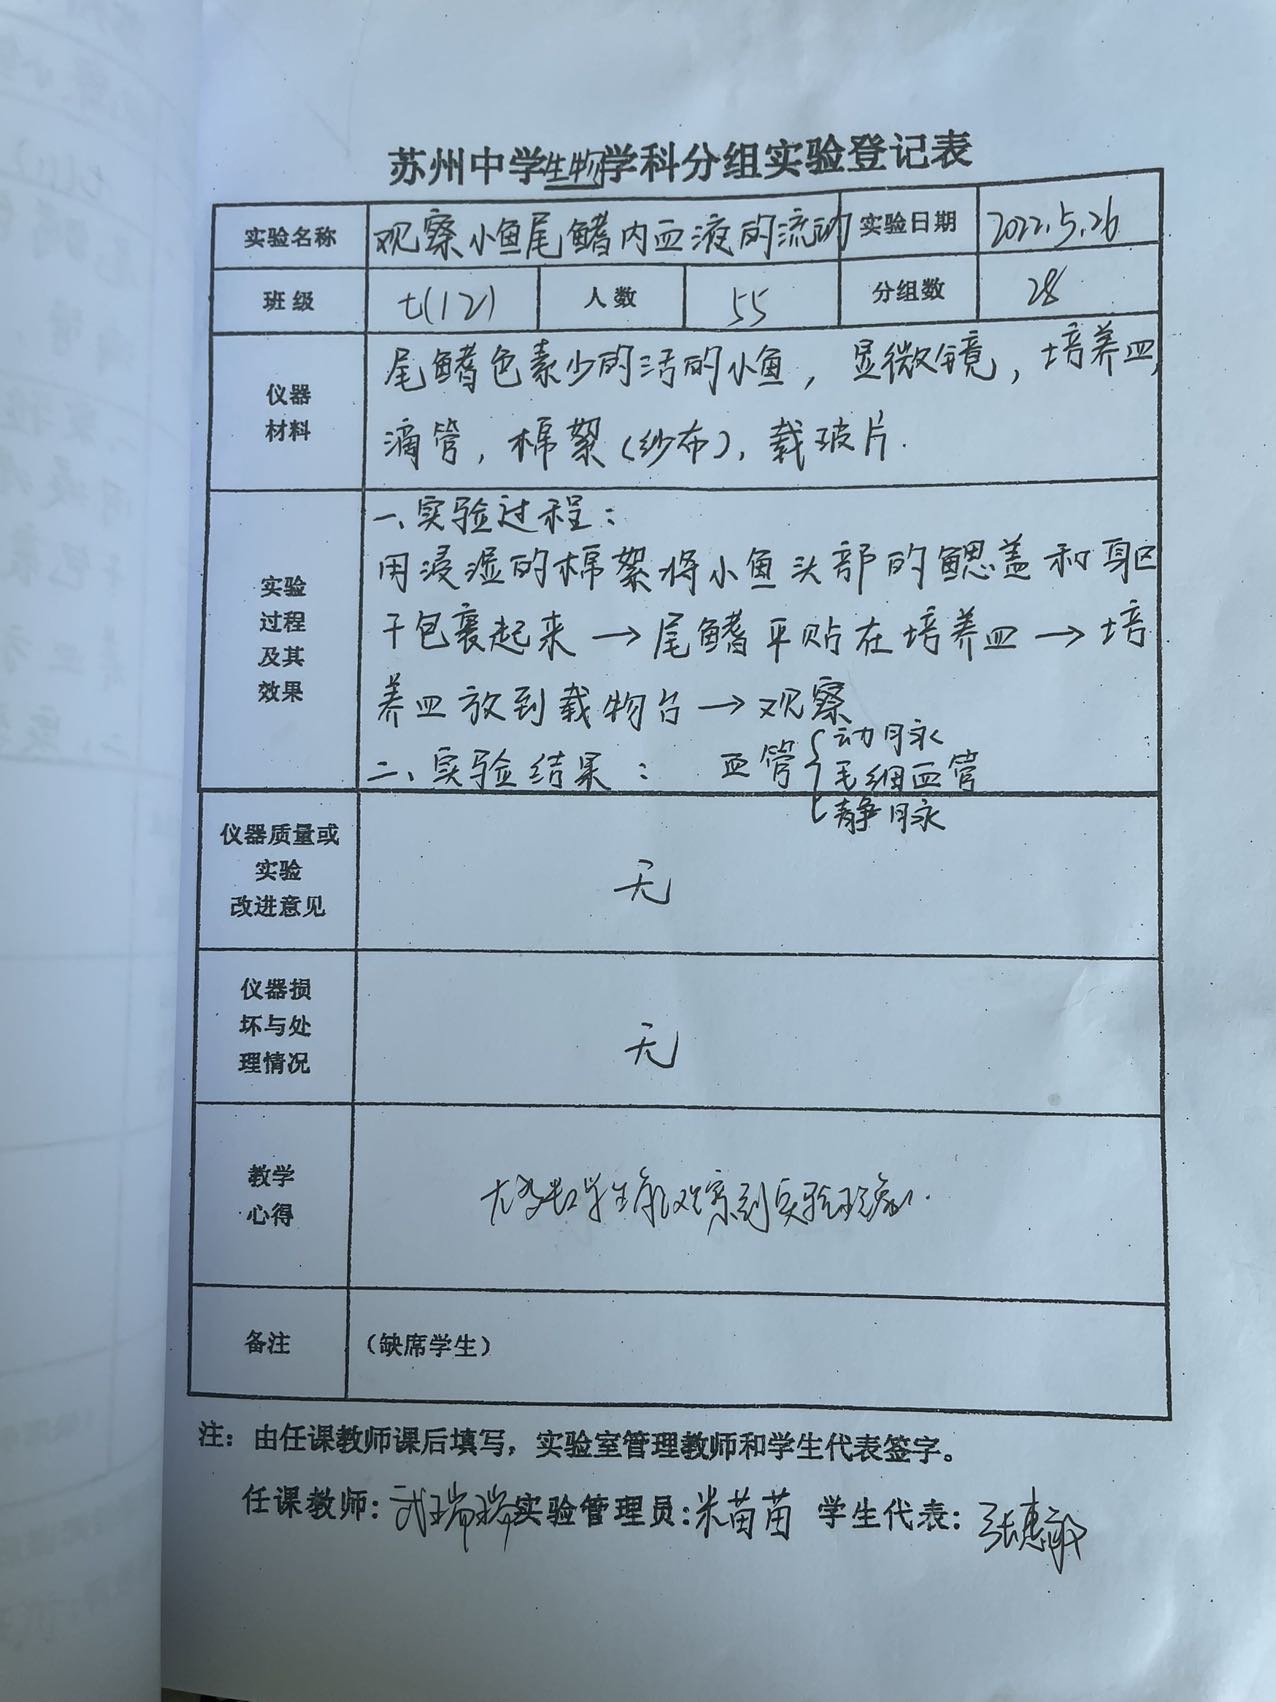 苏州中学生物学科分组实验登记表
实验名称 观察小鱼尾鳍内血液的流动 实验日期 2022.5.26
班级 七(12) 人数 55 分组数 28
仪器
材料
尾鳍色素少的活的小鱼，显微镜，培养皿，
滴管，棉絮(纱布)，载玻片.
实验
过程
及其
效果
一、实验过程：
用浸湿的棉絮将小鱼头部的鳃盖和躯
干包裹起来→尾鳍平贴在培养皿→培
养皿放到载物台→观察
二、实验结果： 血管{动脉
毛细血管
静脉
仪器质量或
实验
改进意见
无
仪器损
坏与处
理情况
无
教学
心得
大多数学生能观察到实验现象.
备注 (缺席学生)
注：由任课教师课后填写，实验室管理教师和学生代表签字。
任课教师：武瑞瑞 实验管理员：米苗苗 学生代表：张惠敏